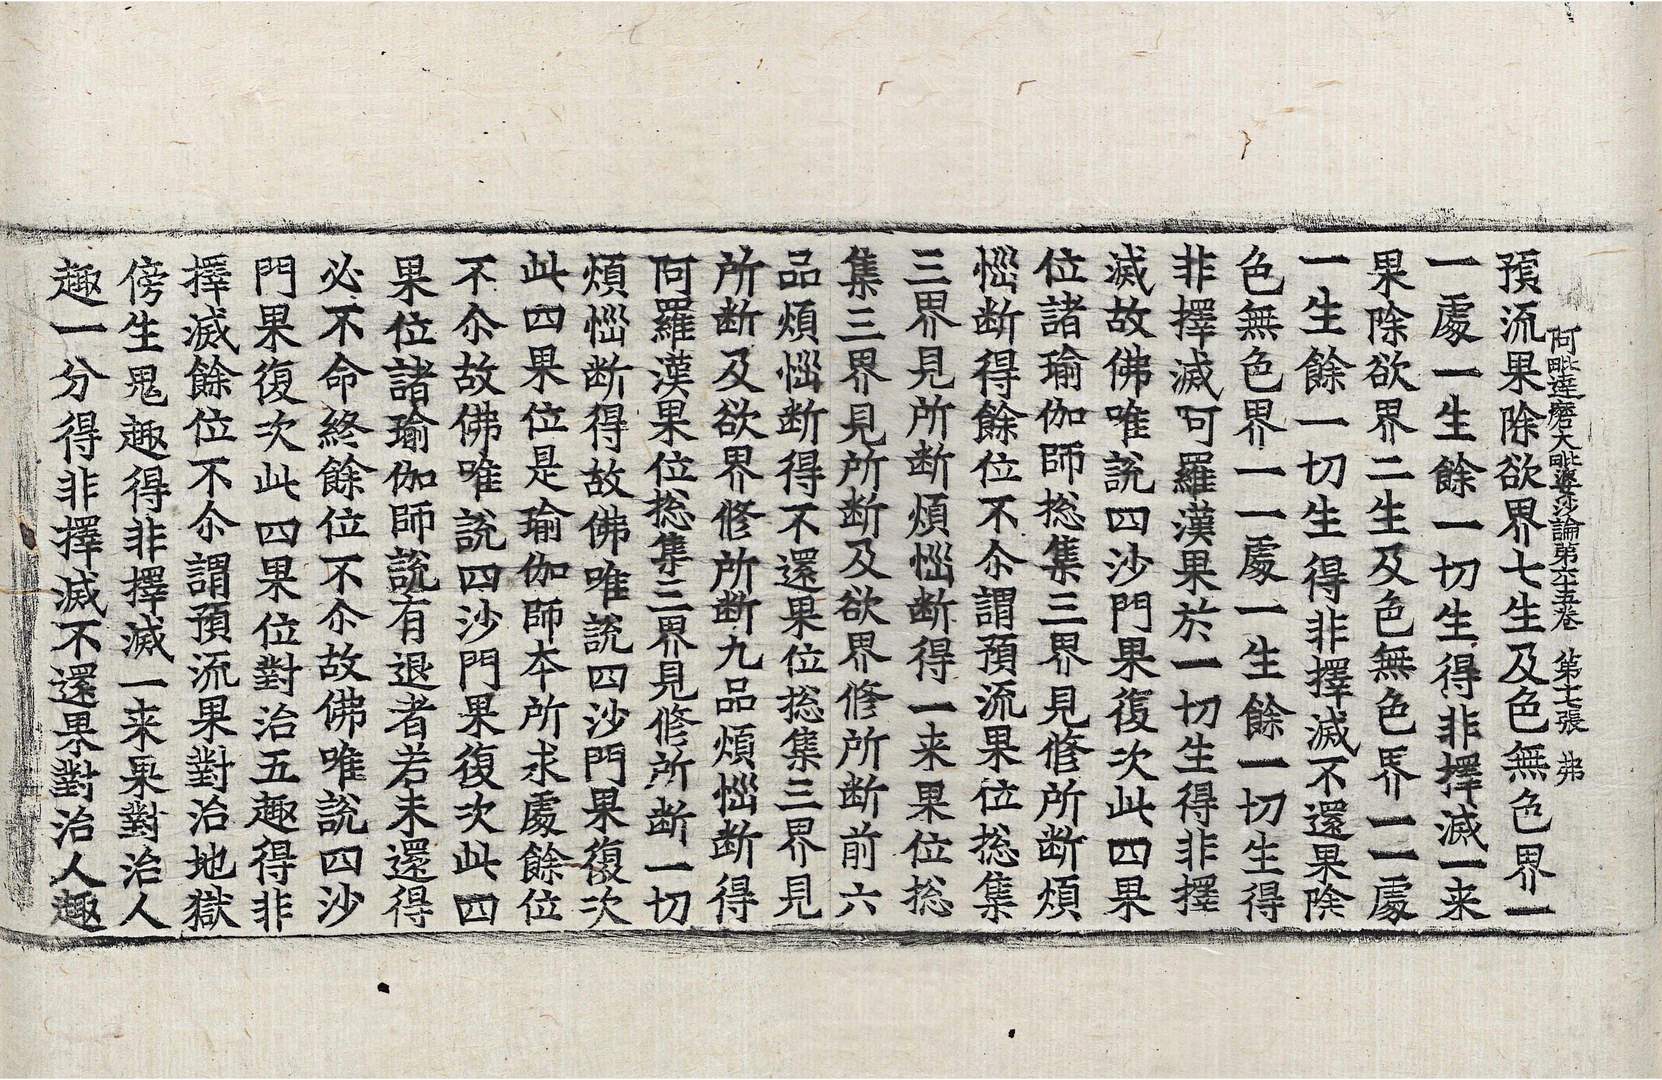 阿毗達磨大毗婆沙論第六十五卷　第十七張　弗
預流果除欲界七生及色無色界一
一處一生餘一切生得非擇滅一来
果除欲界二生及色無色界一一處
一生餘一切生得非擇滅不還果除
色無色界一一處一生餘一切生得
非擇滅阿羅漢果於一切生得非擇
滅故佛唯說四沙門果復次此四果
位諸瑜伽師捴集三界見修所断煩
惱断得餘位不尒謂預流果位捴集
三界見所断煩惱断得一来果位捴
集三界見所断及欲界修所断前六
品煩惱断得不還果位捴集三界見
所断及欲界修所断九品煩惱断得
阿羅漢果位捴集三界見修所断一切
煩惱断得故佛唯說四沙門果復次
此四果位是瑜伽師本所求處餘位
不尒故佛唯說四沙門果復次此四
果位諸瑜伽師說有退者若未還得
必不命終餘位不尒故佛唯說四沙
門果復次此四果位對治五趣得非
擇滅餘位不尒謂預流果對治地獄
傍生鬼趣得非擇滅一来果對治人
趣一分得非擇滅不還果對治人趣